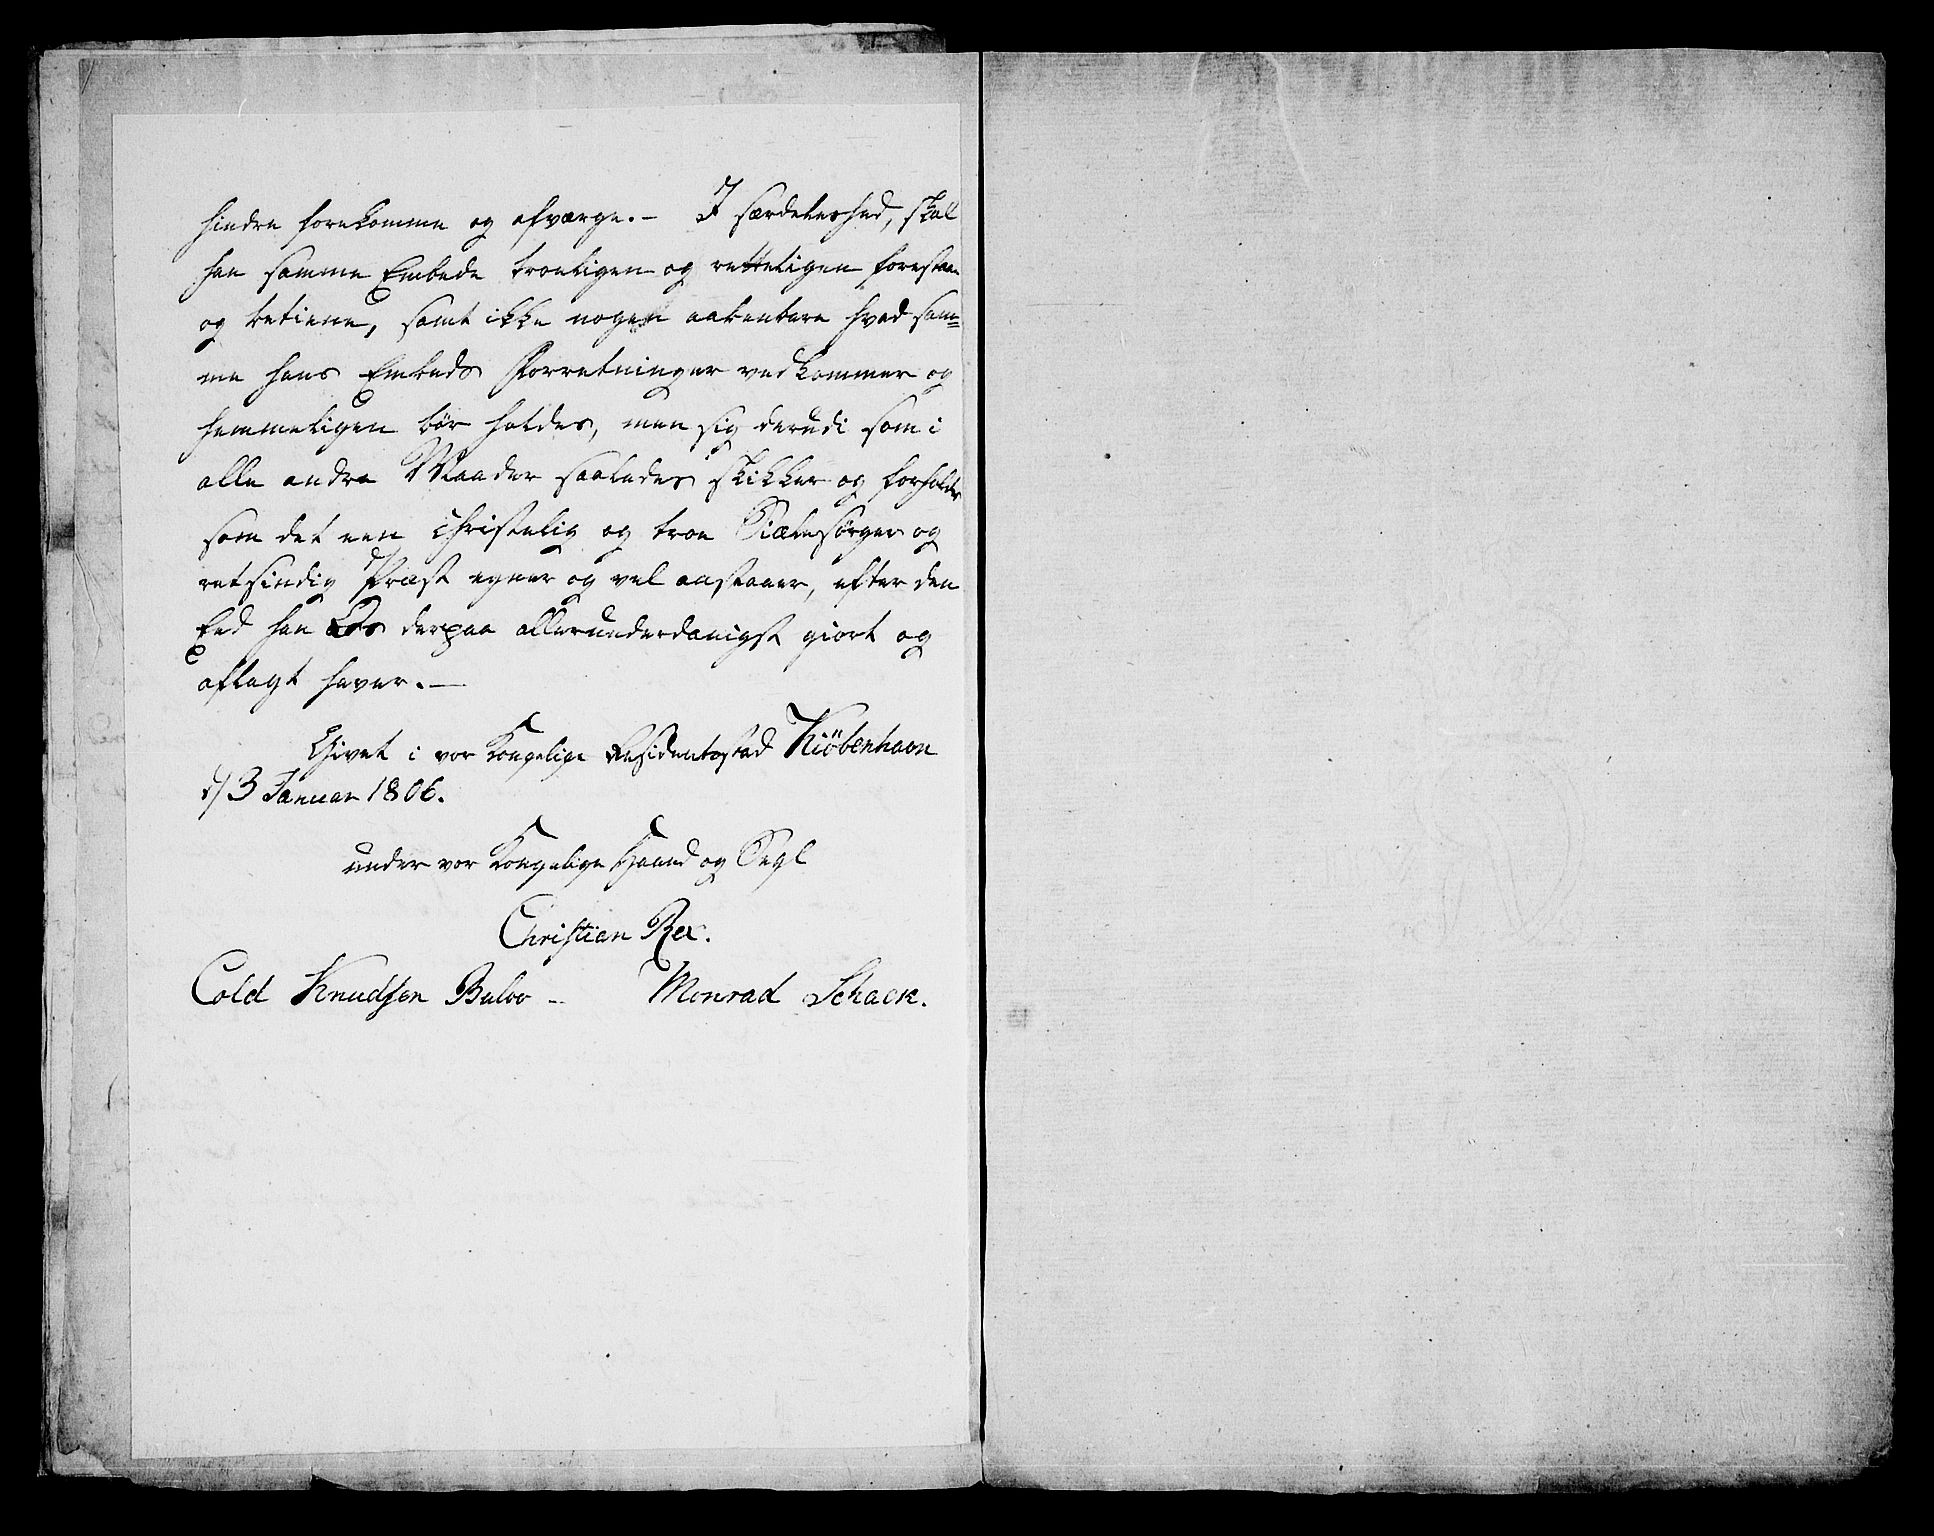 hindre forekomme og afværge. – I særdeleshed, skal
han samme Embede troeligen og retteligen forestaae
og betiene, samt ikke nogen aabenbare hvad sam=
me hans Embeds Forretninger vedkommer og
hemmeligen bør holdes, men sig derudi som i
alle andre Maader saaledes skikker og forholder
som det een christelig og troe Siælesørger og
retsindig Præst egner og vel anstaaer, efter den
Eed han Os derpaa allerunderdanigst giort og
aflagt haver. —
Givet i vor Kongelige Residentzstad Kiöbenhavn
d/ 3 Januar 1806.
under vor Kongelige Haand og Segl
Christian Rex.
Cold Knudsen Bulov – Monrad Schack.